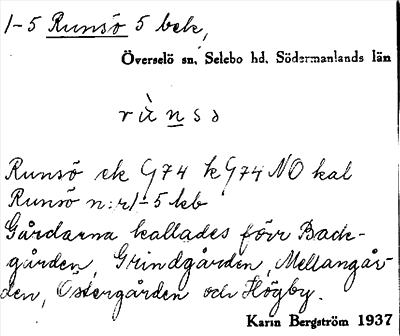 1-5 Runsö 5 bek,
Överselö sn, Selebo hd, Södermanlands län
Runsö ek G74 k G74 NO kal
Runsö n:r 1-5 kb
Gårdarna kallades förr Back-
gården, Grindgården, Mellangår-
den, Östergården och Högby.
Karin Bergström 1937